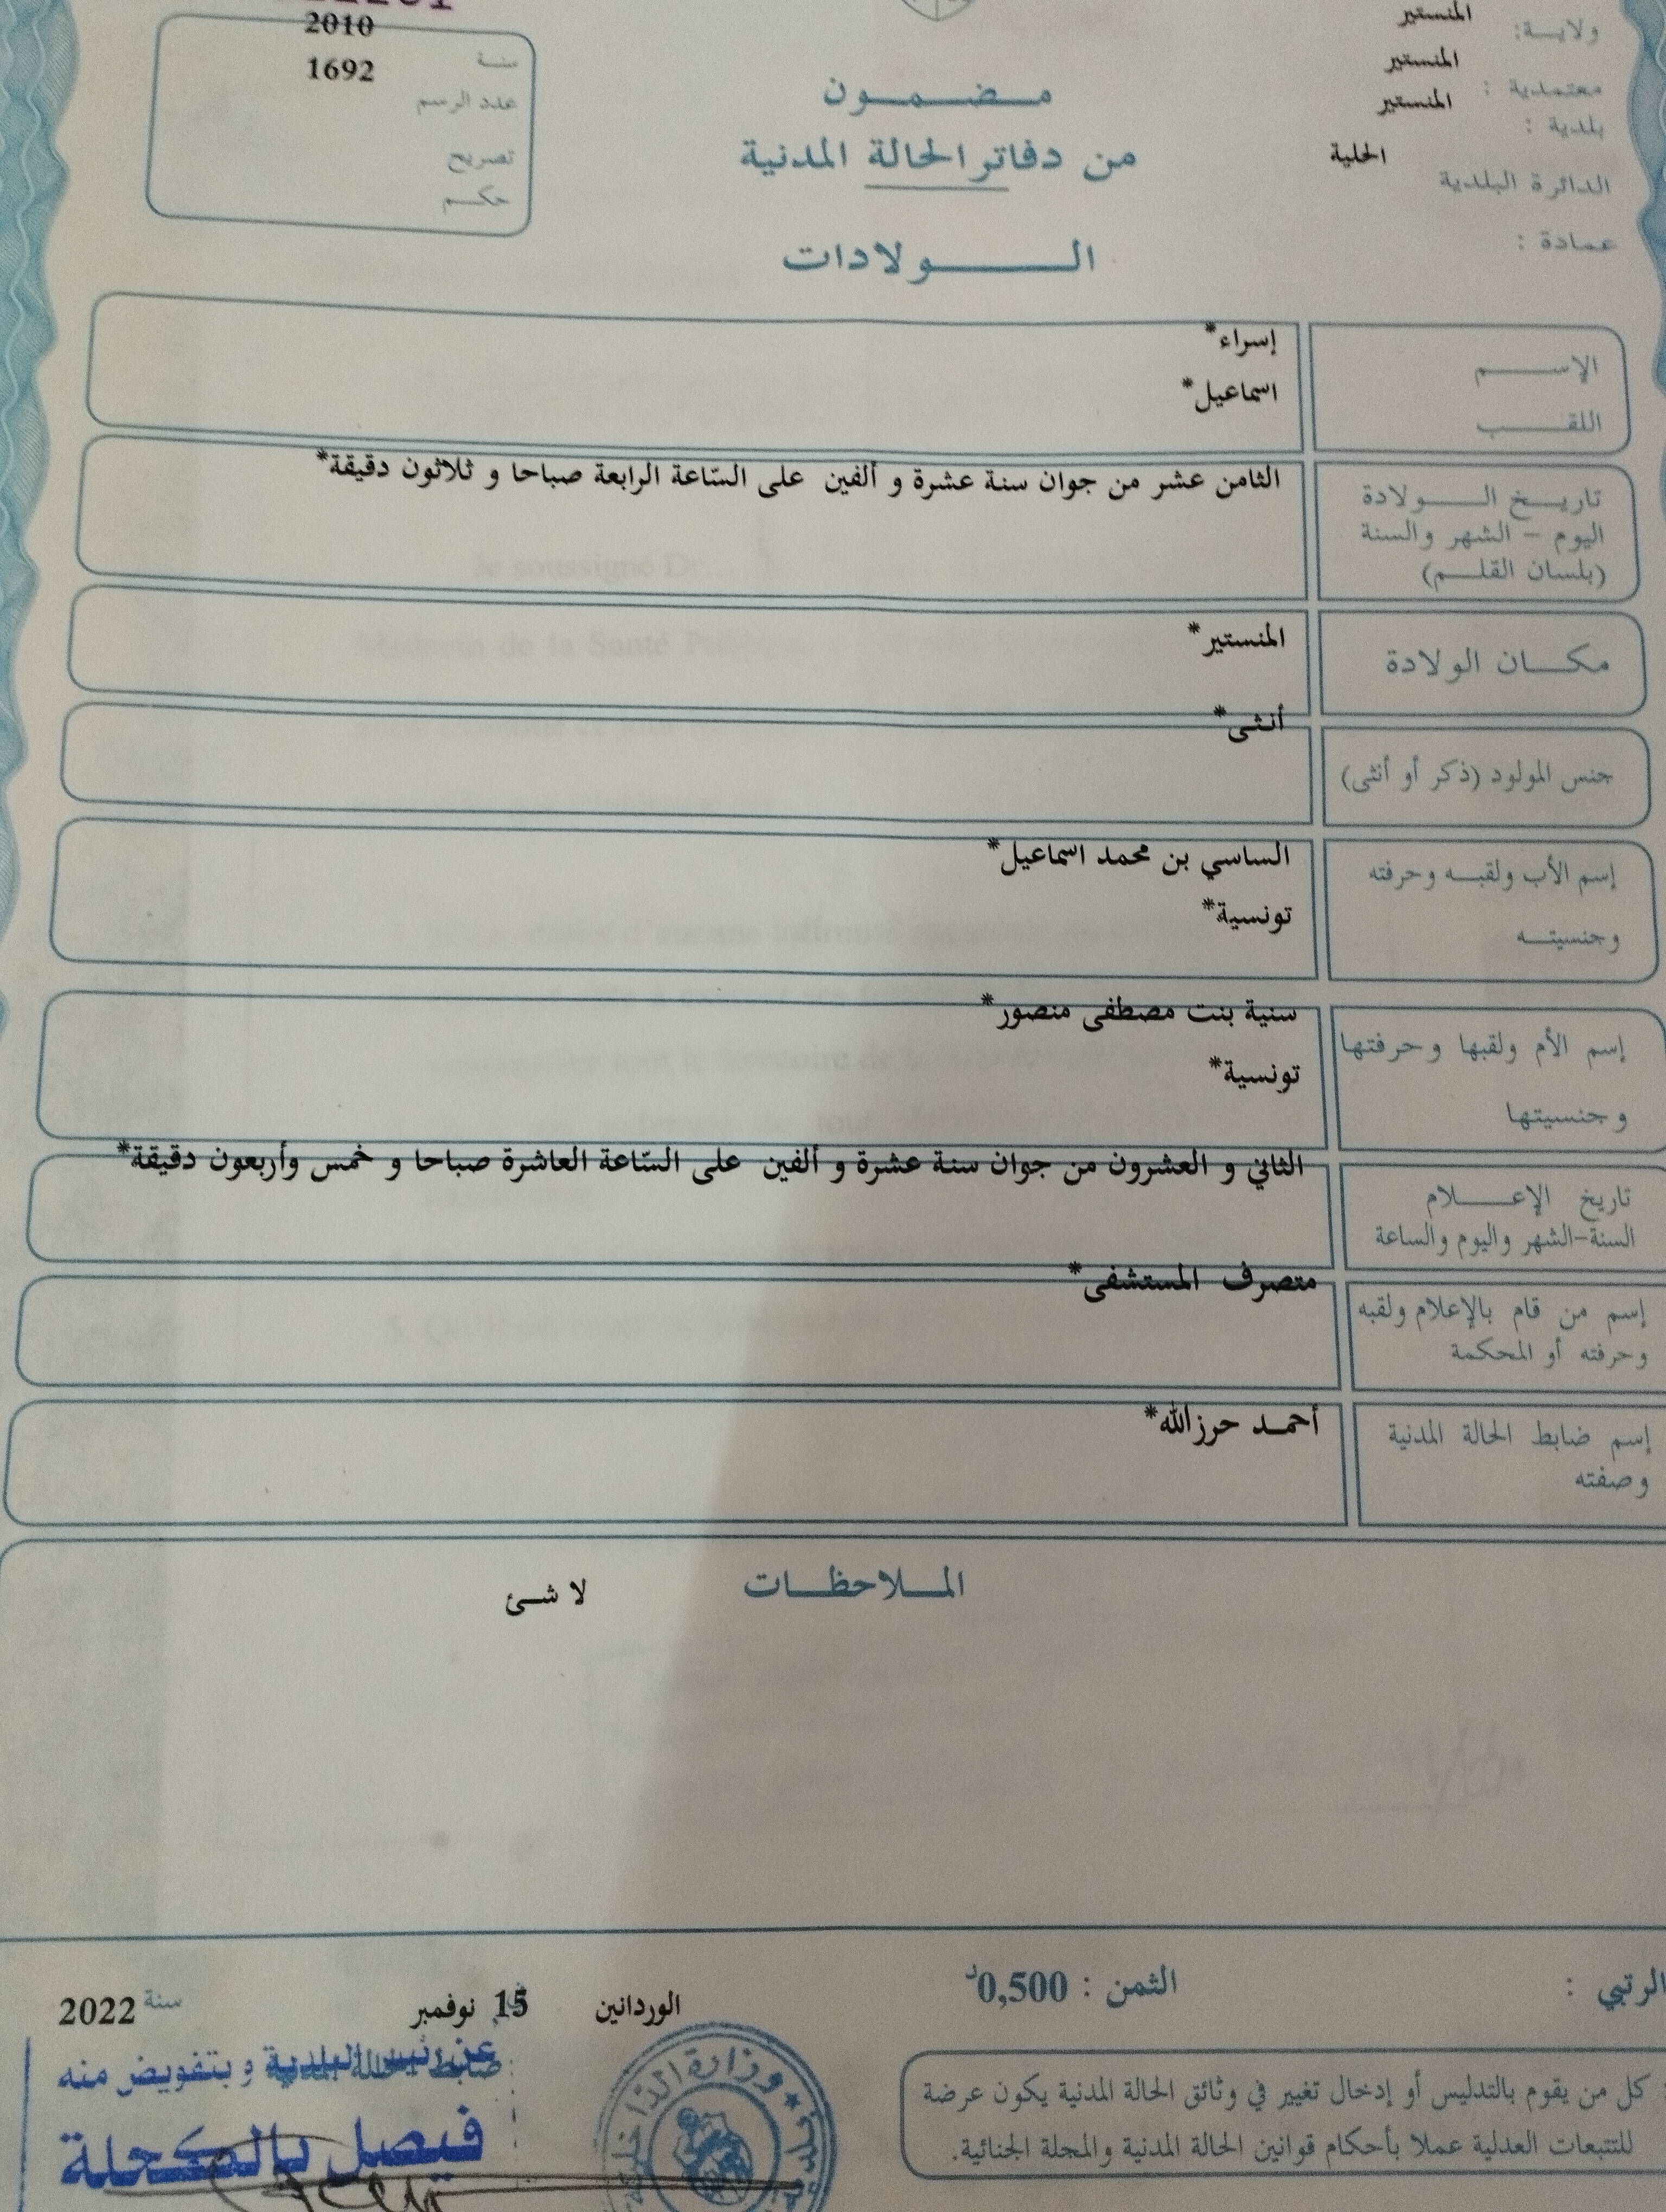 ولاية: المنستير
معتمدية : المنستير
بلدية : المنستير
الدائرة البلدية الحلية
عمادة :
مضمون
من دفاتر الحالة المدنية
الولادات
2010
سنة
1692
عدد الرسم
تصريح
حكم
الإسم إسراء*
اللقب اسماعيل*
تاريخ الولادة
اليوم - الشهر والسنة
(بلسان القلم)
الثامن عشر من جوان سنة عشرة و ألفين على السّاعة الرابعة صباحا و ثلاثون دقيقة*
مكان الولادة المنستير*
جنس المولود (ذكر أو أنثى) أنثى*
إسم الأب ولقبه وحرفته الساسي بن محمد اسماعيل*
وجنسيته تونسية*
إسم الأم ولقبها وحرفتها سنية بنت مصطفى منصور*
وجنسيتها تونسية*
تاريخ الإعلام
السنة-الشهر واليوم والساعة
الثاني و العشرون من جوان سنة عشرة و ألفين على السّاعة العاشرة صباحا و خمس وأربعون دقيقة*
إسم من قام بالإعلام ولقبه
وحرفته أو المحكمة
متصرف المستشفى*
إسم ضابط الحالة المدنية
وصفته
أحمد حرزالله*
الملاحظات لا شئ
الرتبي : الثمن : 0,500د
الوردانين 15 نوفمبر سنة 2022
ضابط الحالة المدنية
عن رئيس البلدية و بتفويض منه
فيصل بالمكحلة
وزارة الداخلية
: كل من يقوم بالتدليس أو إدخال تغيير في وثائق الحالة المدنية يكون عرضة
للتتبعات العدلية عملا بأحكام قوانين الحالة المدنية والمجلة الجنائية.